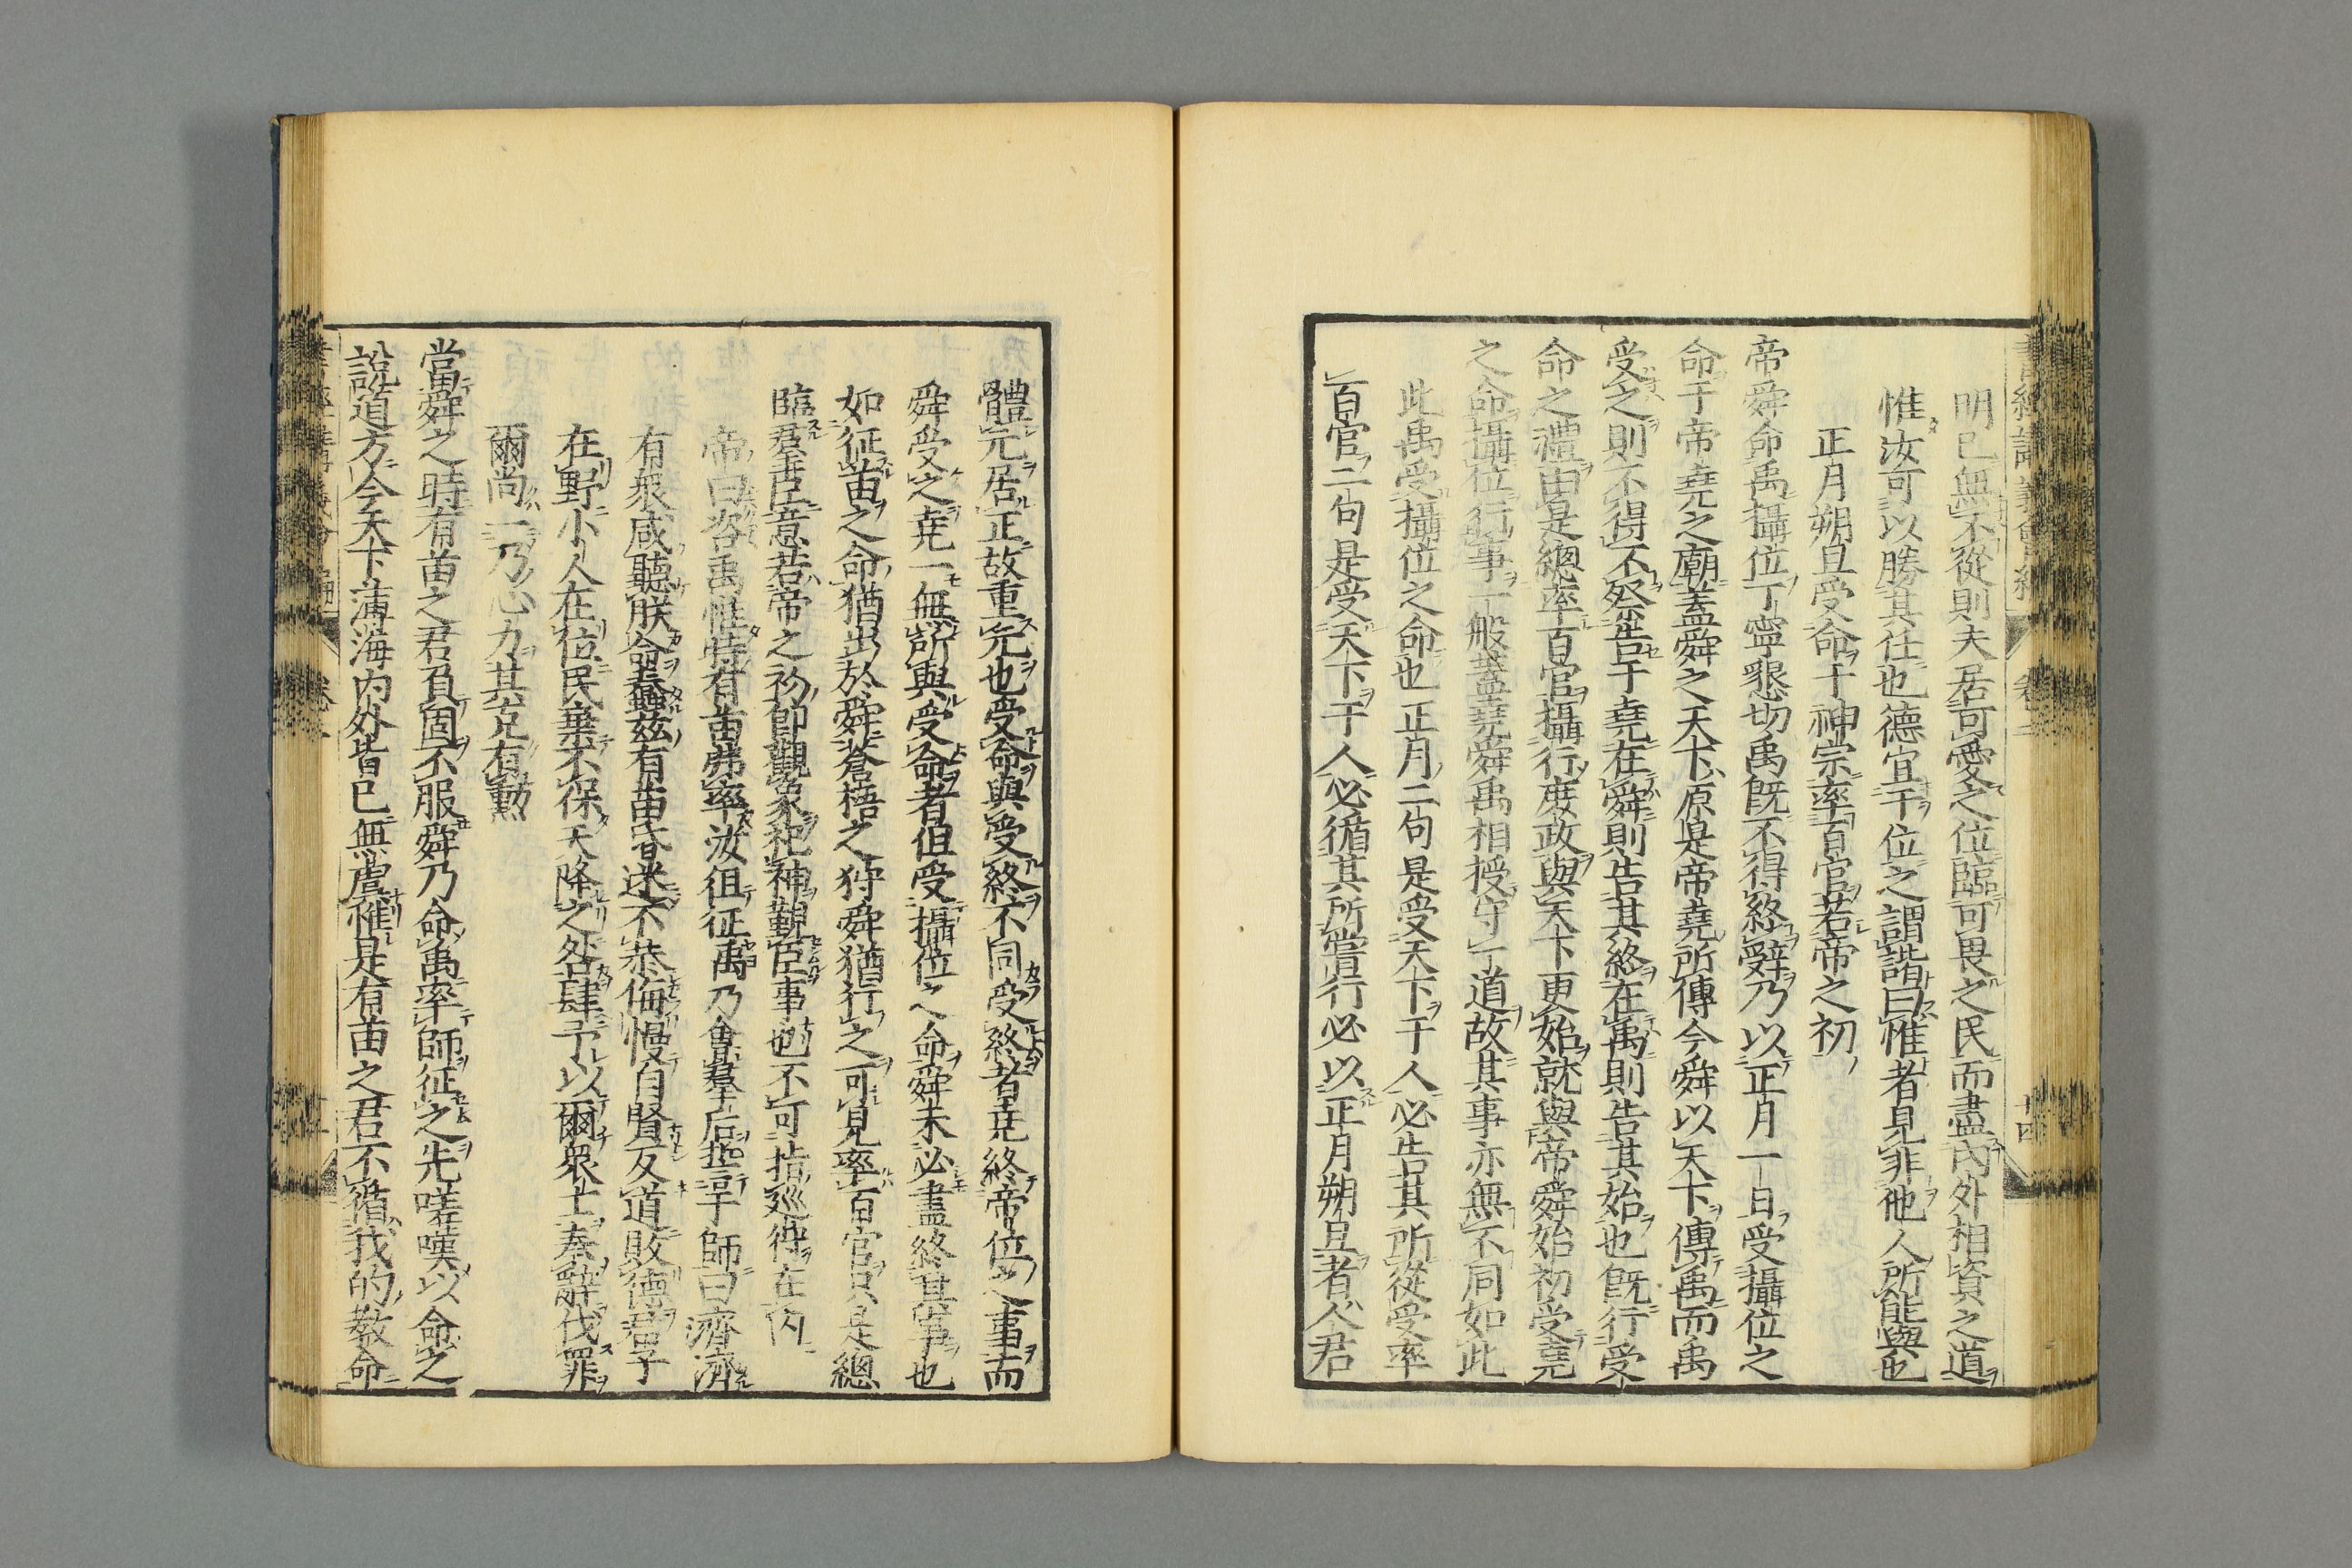 明已無不從則夫居可愛之位臨可畏之民而盡內外相資之道
惟汝可以勝其任也德宜于位之謂諧曰惟者見非他人所能與也
正月朔旦受命于神宗率百官若帝之初
帝舜命禹攝位丁寧懇切禹既不得終辭乃以正月一日受攝位之
命于帝堯之廟蓋舜之天下原是帝堯所傳今舜以天下傳禹而禹
受之則不得不祭告于堯在舜則告其終在禹則告其始也既行受
命之禮由是總率百官攝行庶政與天下更始就與帝舜始初受堯
之命攝位行事一般蓋堯舜禹相授守一道故其事亦無不同如此
此禹受攝位之命也正月二句是受天下于人必告其所從受率
百官二句是受天下于人必循其所嘗行必以正月朔旦者人君
體元居正故重元也受命與受終不同受終者堯終帝位之事而
舜受之堯一無所與受命者但受攝位之命舜未必盡終其事也
如征苗之命猶出於舜蒼梧之狩舜猶行之可見率百官只是總
臨羣臣意若帝之初即觀象祀神覲臣事也不可指巡狩在內
帝曰咨禹惟時有苗弗率汝徂征禹乃會羣后誓于師曰濟濟
有衆咸聽朕命蠢玆有苗昏迷不恭侮慢自賢反道敗德君子
在野小人在位民棄不保天降之咎肆予以爾衆士奉辭伐罪
爾尚一乃心力其克有勳
當舜之時有苗之君負固不服舜乃命禹率師征之先嗟嘆以命之
說道方今天下薄海內外皆已無虞惟是有苗之君不循我的教命